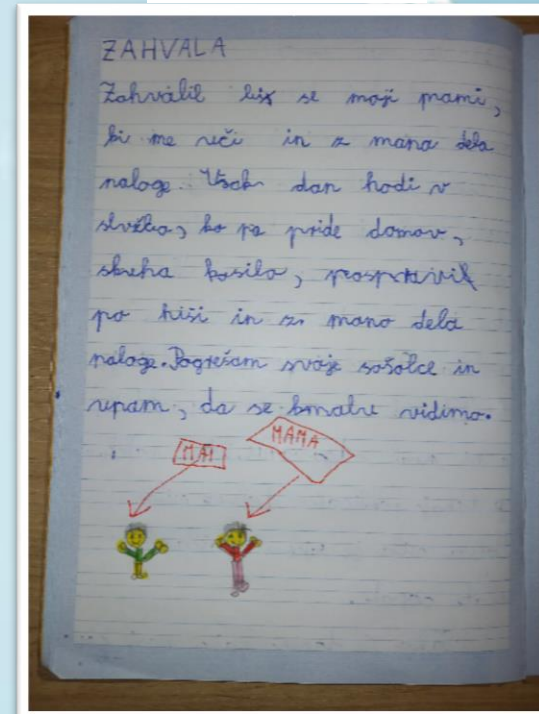 ZAHVALA
Zahvalil bi se moji mami,
ki me uči in z mano dela
naloge. Vsak dan hodi v
službo, ko pa pride domov,
skuha kosilo, pospravi
po hiši in z mano dela
naloge. Pogrešam svoje sošolce in
upam, da se kmalu vidimo.
MAMA